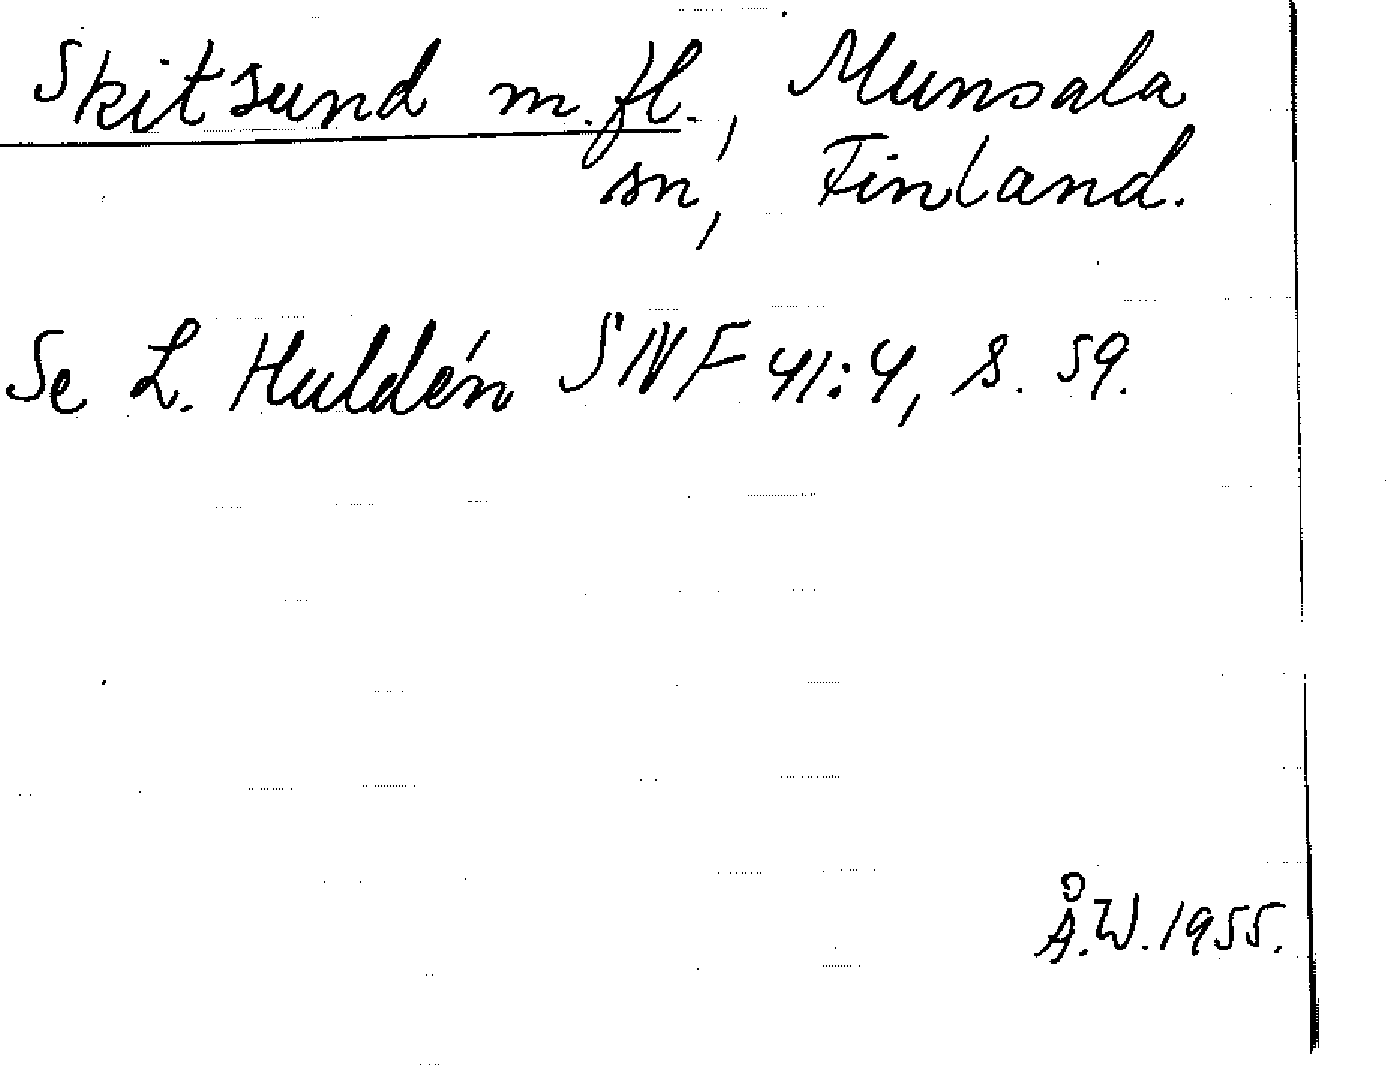 Skitsund m.fl., Munsala
sn, Finland.
Se L. Huldén SNF 41:4, s. 59.
Å.W. 1955.